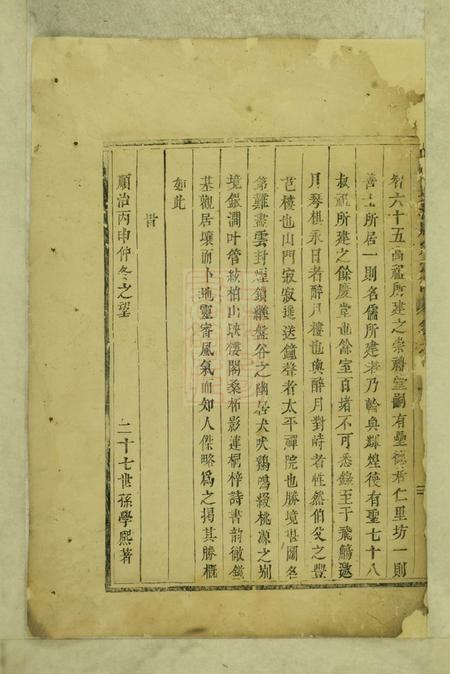 智六十五高祖所建之崇禧堂嗣有壘德者仁里坊一則
善士所居一則名儒所建者乃輪奐輝煌德有聖七十八
叔祖所建之餘慶堂也餘室百堵不可悉錄至于飛觴邀
月琴棋永日者醉月樓也與醉月對峙者牲然伯父之豐
芑樓也山門寂寂遞送鐘聲者太平禪院也勝境堪圖名
第難盡雲封煙鎖繼盤谷之幽居犬吠鷄鳴綴桃源之別
境銀澗叶管絃柏山映僂閣桑柘影連桐梓詩書韻徹鐃
基觀居壤而卜地靈審風氣而知人傑略為之揭其勝概
如此
旹
順治丙申仲冬之望
二十七世孫學熙著